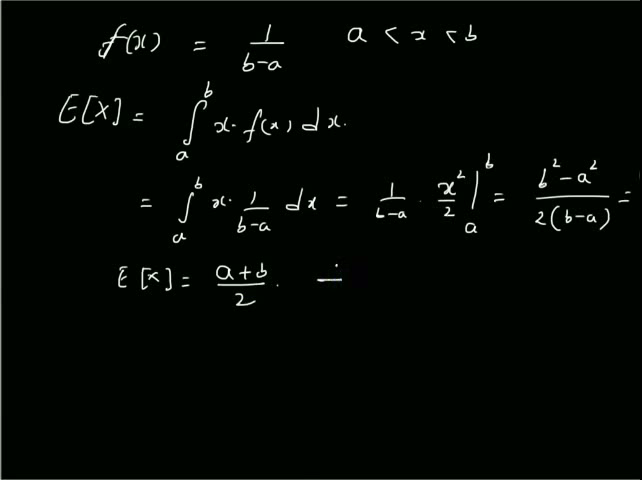 f(x) = 1/(b-a) a < x < b
E[X] = ∫_a^b x · f(x) dx.
= ∫_a^b x · 1/(b-a) dx = 1/(b-a) · x²/2 |_a^b = (b² - a²)/(2(b-a)) =
E[x] = (a+b)/2 .